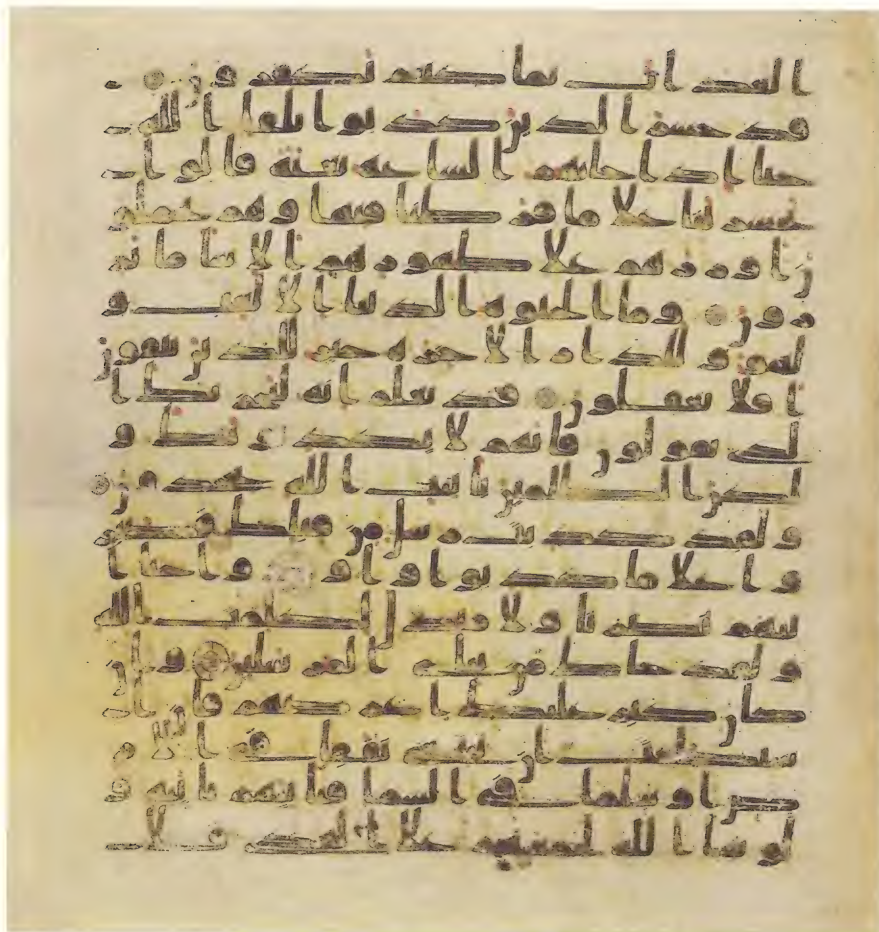 العذاب بما كنتم تكفرون
قد خسر الذين كذبوا بلقا الله
حتى اذا جاتهم الساعة بغتة قالوا يا
حسرتنا على ما فرطنا فيها وهم يحملو
ن اوزرهم على ظهورهم الا سا ما يز
رون وما الحيوة الدنيا الا لعب و
لهو وللدار الاخرة خير للذين يتقون
افلا تعقلون قد نعلم انه ليحزنك ا
لذي يقولون فانهم لا يكذبونك و
لكن الظلمين بايت الله يجحدون
ولقد كذبت رسل من قبلك فصبرو
ا على ما كذبوا واوذوا حتى ا
تيهم نصرنا ولا مبدل لكلمت الله
ولقد جاك من نباى المرسلين وان
كان كبر عليك اعراضهم فان ا
ستطعت ان تبتغي نفقا في الار
ض او سلما في السما فتاتيهم باية و
لو شا الله لجمعهم على الهدى فلا